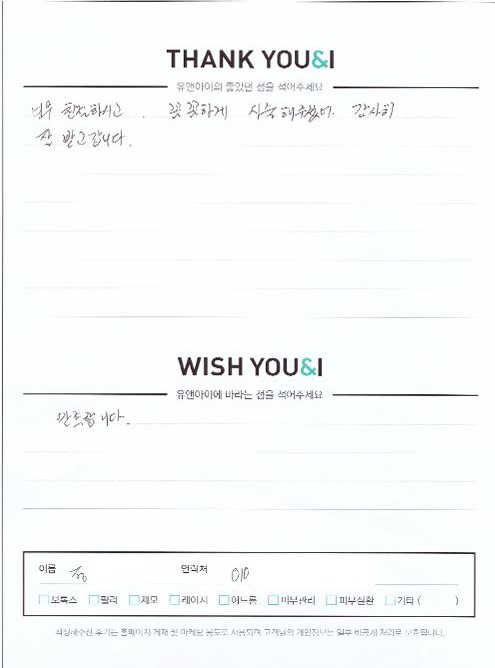 THANK YOU&I
유앤아이의 좋았던 점을 적어주세요
너무 친절하시고. 꼼꼼하게 시술해주셨어. 감사히
잘 받고 갑니다.
WISH YOU&I
유앤아이에 바라는 점을 적어주세요
만족합니다.
이름 연락처 010
보톡스 필러 제모 레이저 여드름 피부관리 피부질환 기타 ( )
작성해주신 후기는 홈페이지 게재 및 마케팅 용도로 사용되며 고객님의 개인정보는 일부 비공개 처리로 보호됩니다.